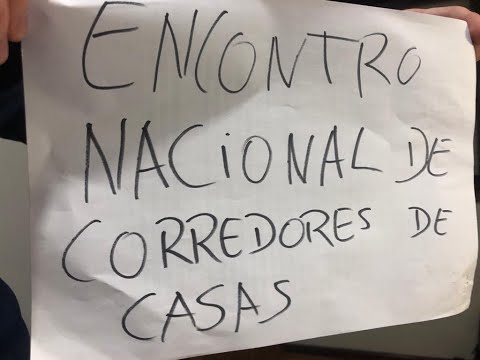 ENCONTRO
NACIONAL DE
CORREDORES DE
CASAS